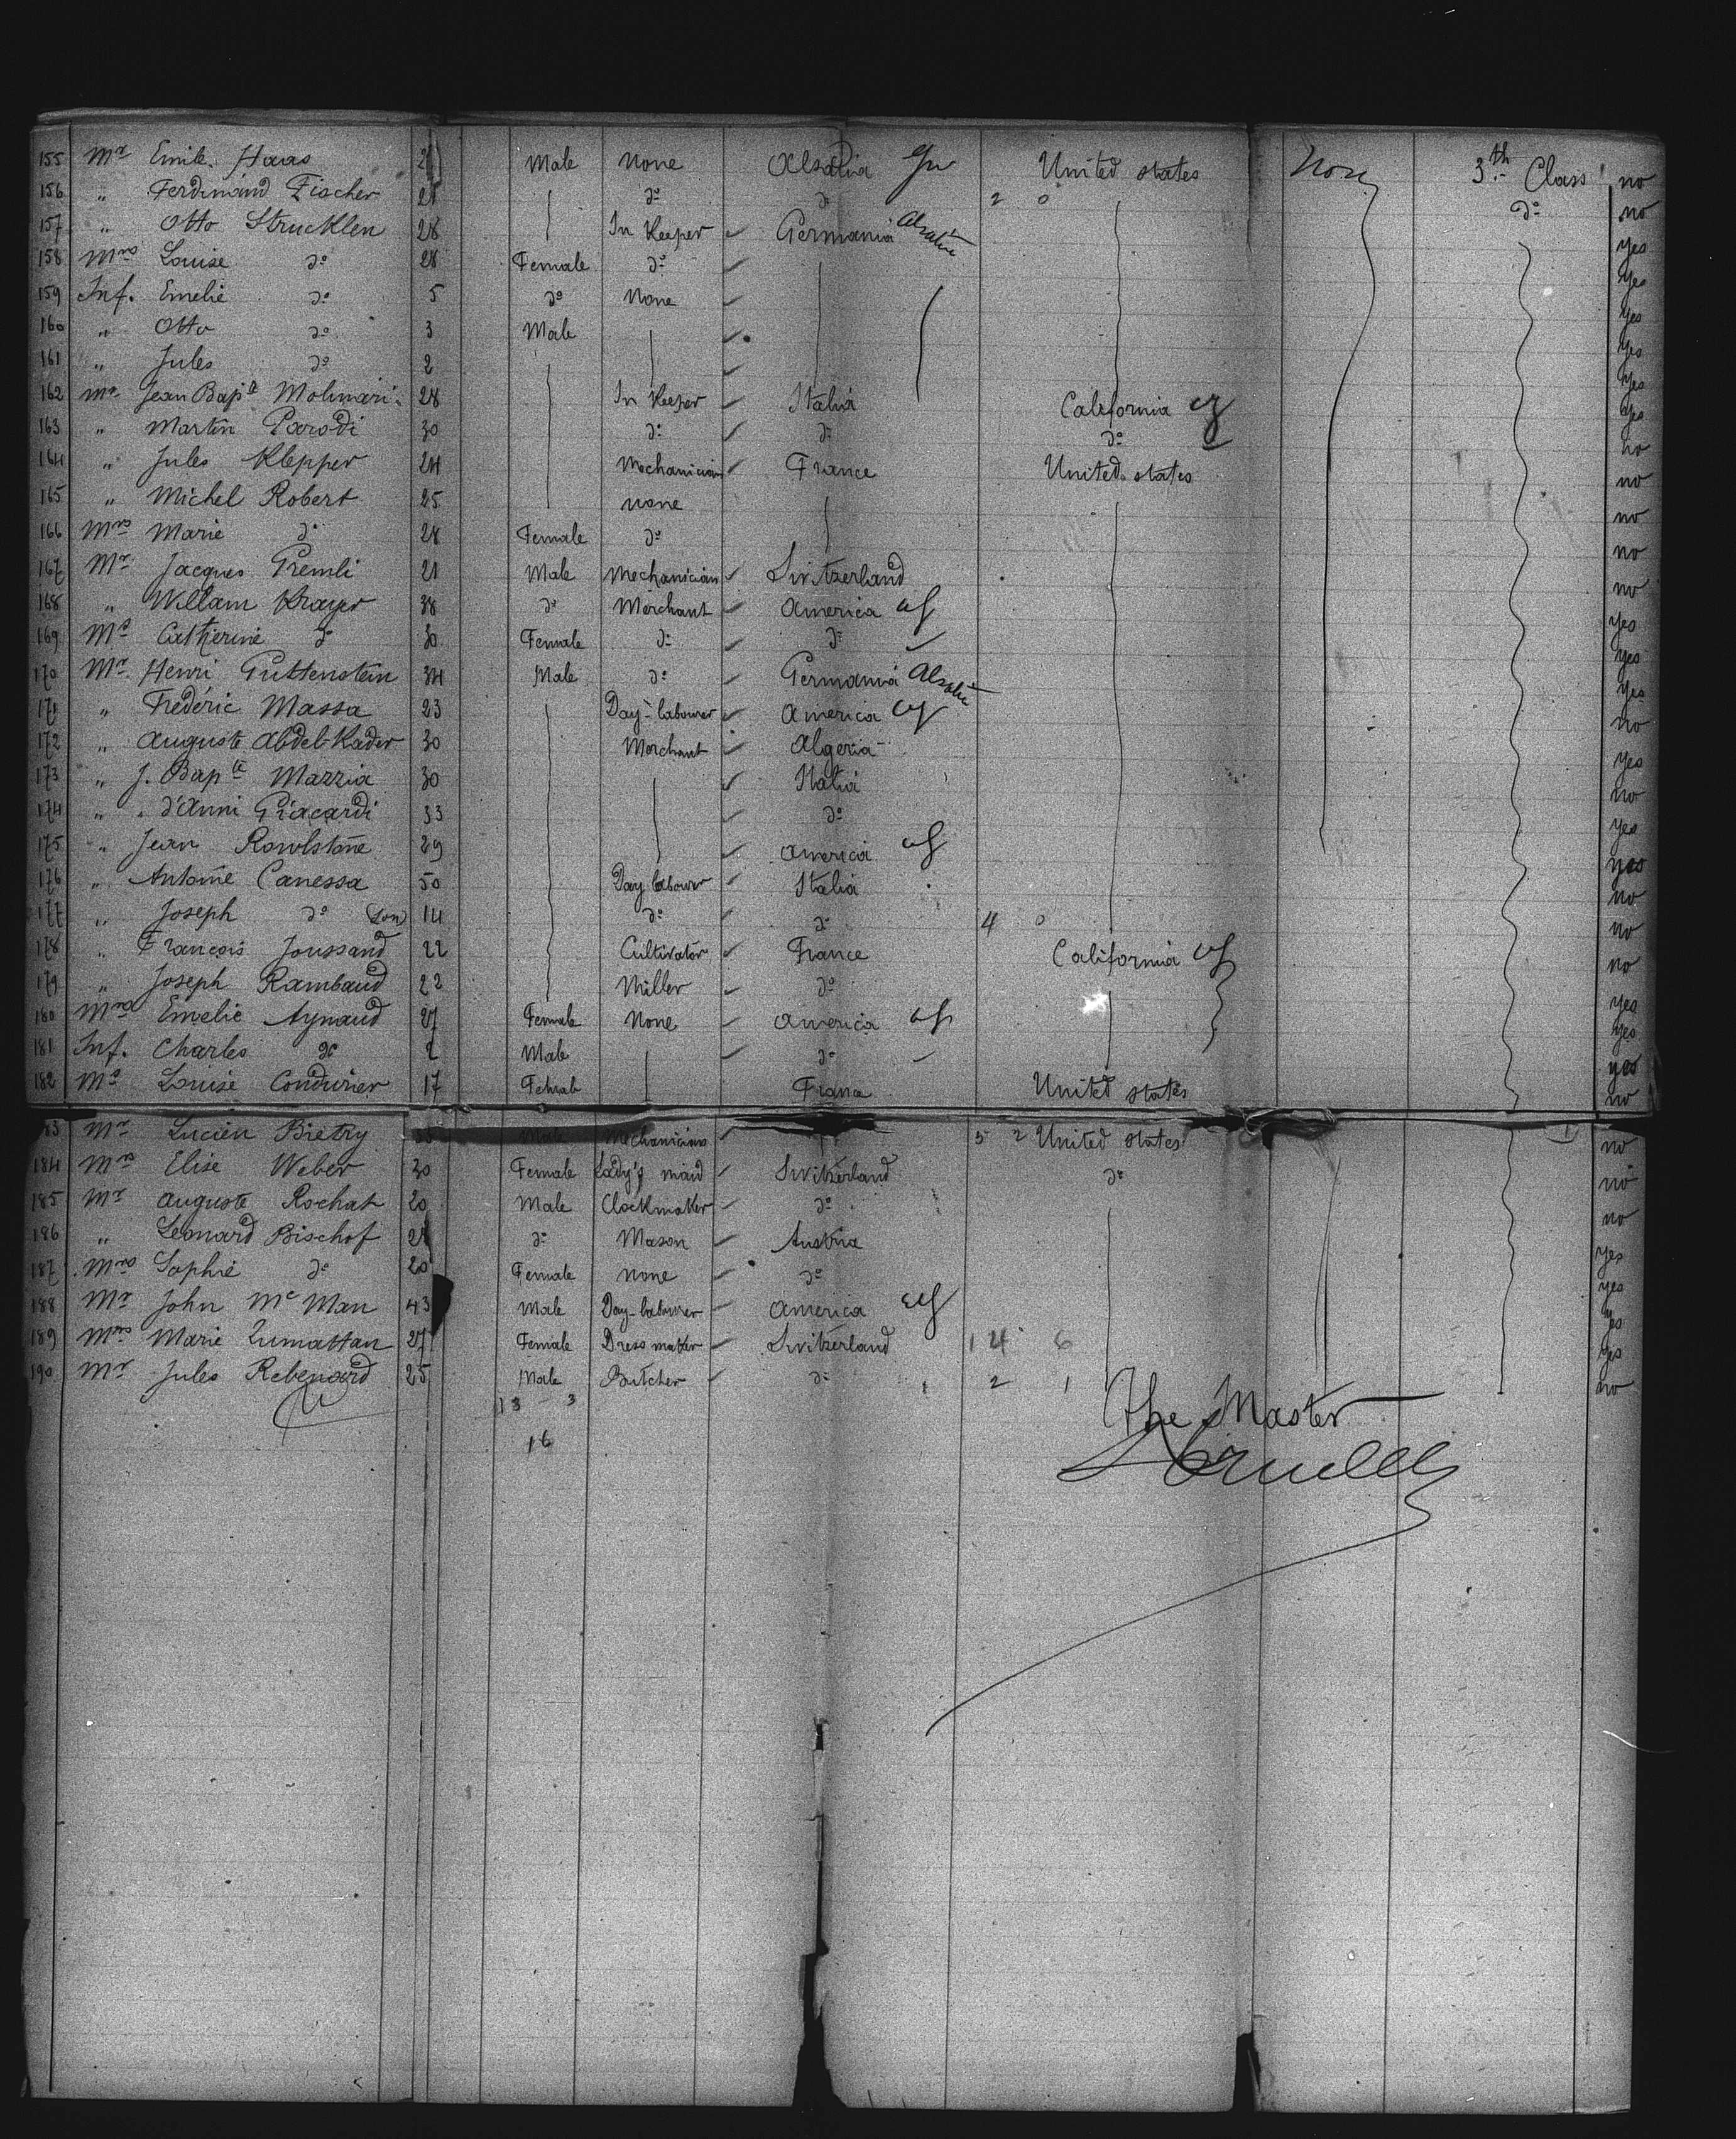 155 Mr Emile Haas Male None Alsatia United states None 3.th Class no
156 " Ferdinand Fischer do do 2 0 do no
157 " Otto Strucklen 28 In Keeper Germania Alsatia yes
158 Mrs Louise do 28 Female do yes
159 Inf. Emelie do 5 do None yes
160 " Otto do 3 Male yes
161 " Jules do 2 yes
162 Mr Jean Bapte Molinari 28 In Keeper Italia California yes
163 " Martin Parodi 30 do do do no
164 " Jules Klepper 24 Mechanician France United states no
165 " Michel Robert 25 none no
166 Mrs Marie do 28 Female do no
167 Mr Jacques Gremli 21 Male Mechanician Switzerland no
168 " Willam Krayer 38 do Merchant America yes
169 Ms Catherine do 30 Female do do yes
170 Mr Henri Guttenstein 34 Male do Germania Alsatia yes
171 " Frédéric Massa 23 Day-labourer America no
172 " Auguste Abdel-Kader 30 Merchant Algeria yes
173 " J. Bapte Mazzia 30 Italia no
174 " d'Anni Giacardi 33 do yes
175 " Jean Rowlstone 29 America
176 " Antoine Canessa 50 Day labourer Italia no
177 " Joseph do (Son) 14 do do 4 0 no
178 " François Joussand 22 Cultivator France California no
179 " Joseph Rambaud 22 Miller do yes
180 Mrs Emelie Aynaud 27 Female None America yes
181 Inf. Charles do 2 Male do yes
182 Ms Louise Condurier 17 Female France United states no
83 Mr Lucien Bietry Male Mechanician 5 2 United states no
184 Ms Elise Weber 30 Female Lady's maid Switzerland do no
185 Mr Auguste Rochat 20 Male Clockmaker do no
186 " Leonard Bischof do Mason Austria yes
187 Mrs Sophie do 20 Female None do yes
188 Mr John Mc Man 43 Male Day-labourer America yes
189 Mrs Marie Zumattan 27 Female Dress maker Switzerland 14 6 yes
190 Mr Jules Rebenard 25 Male Butcher do 2 1 no
13 - 3
16
The Master